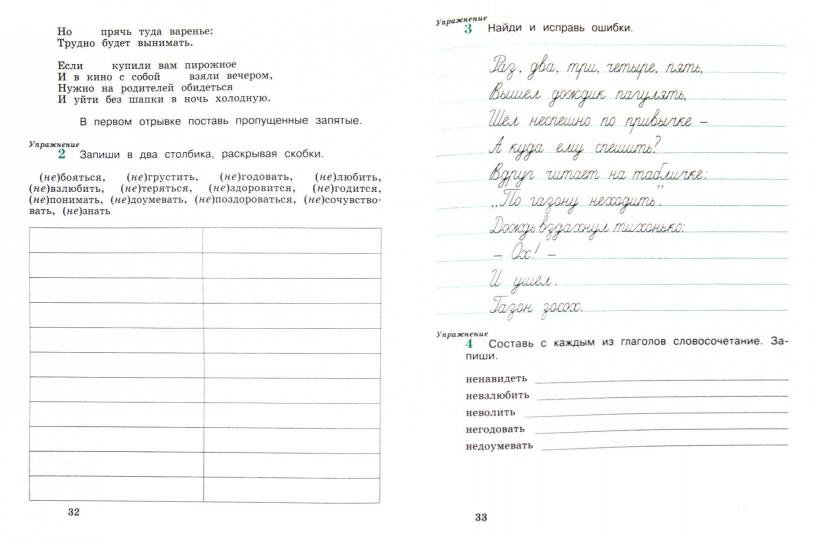 Но прячь туда варенье:
Трудно будет вынимать.
Если купили вам пирожное
И в кино с собой взяли вечером,
Нужно на родителей обидеться
И уйти без шапки в ночь холодную.
В первом отрывке поставь пропущенные запятые.
Упражнение
2 Запиши в два столбика, раскрывая скобки.
(не)бояться, (не)грустить, (не)годовать, (не)любить,
(не)взлюбить, (не)теряться, (не)здоровится, (не)годится,
(не)понимать, (не)доумевать, (не)поздороваться, (не)сочувство-
вать, (не)знать
32
Упражнение
3 Найди и исправь ошибки.
Раз, два, три, четыре, пять,
Вышел дождик пагулять,
Шёл неспешно по привычке –
А куда ему спешить?
Вдруг читает на табличке:
„По газону неходить”.
Дождь вздахнул тихонько:
– Ох! –
И ушёл.
Газон зосох.
Упражнение
4 Составь с каждым из глаголов словосочетание. За-
пиши.
ненавидеть
невзлюбить
неволить
негодовать
недоумевать
33